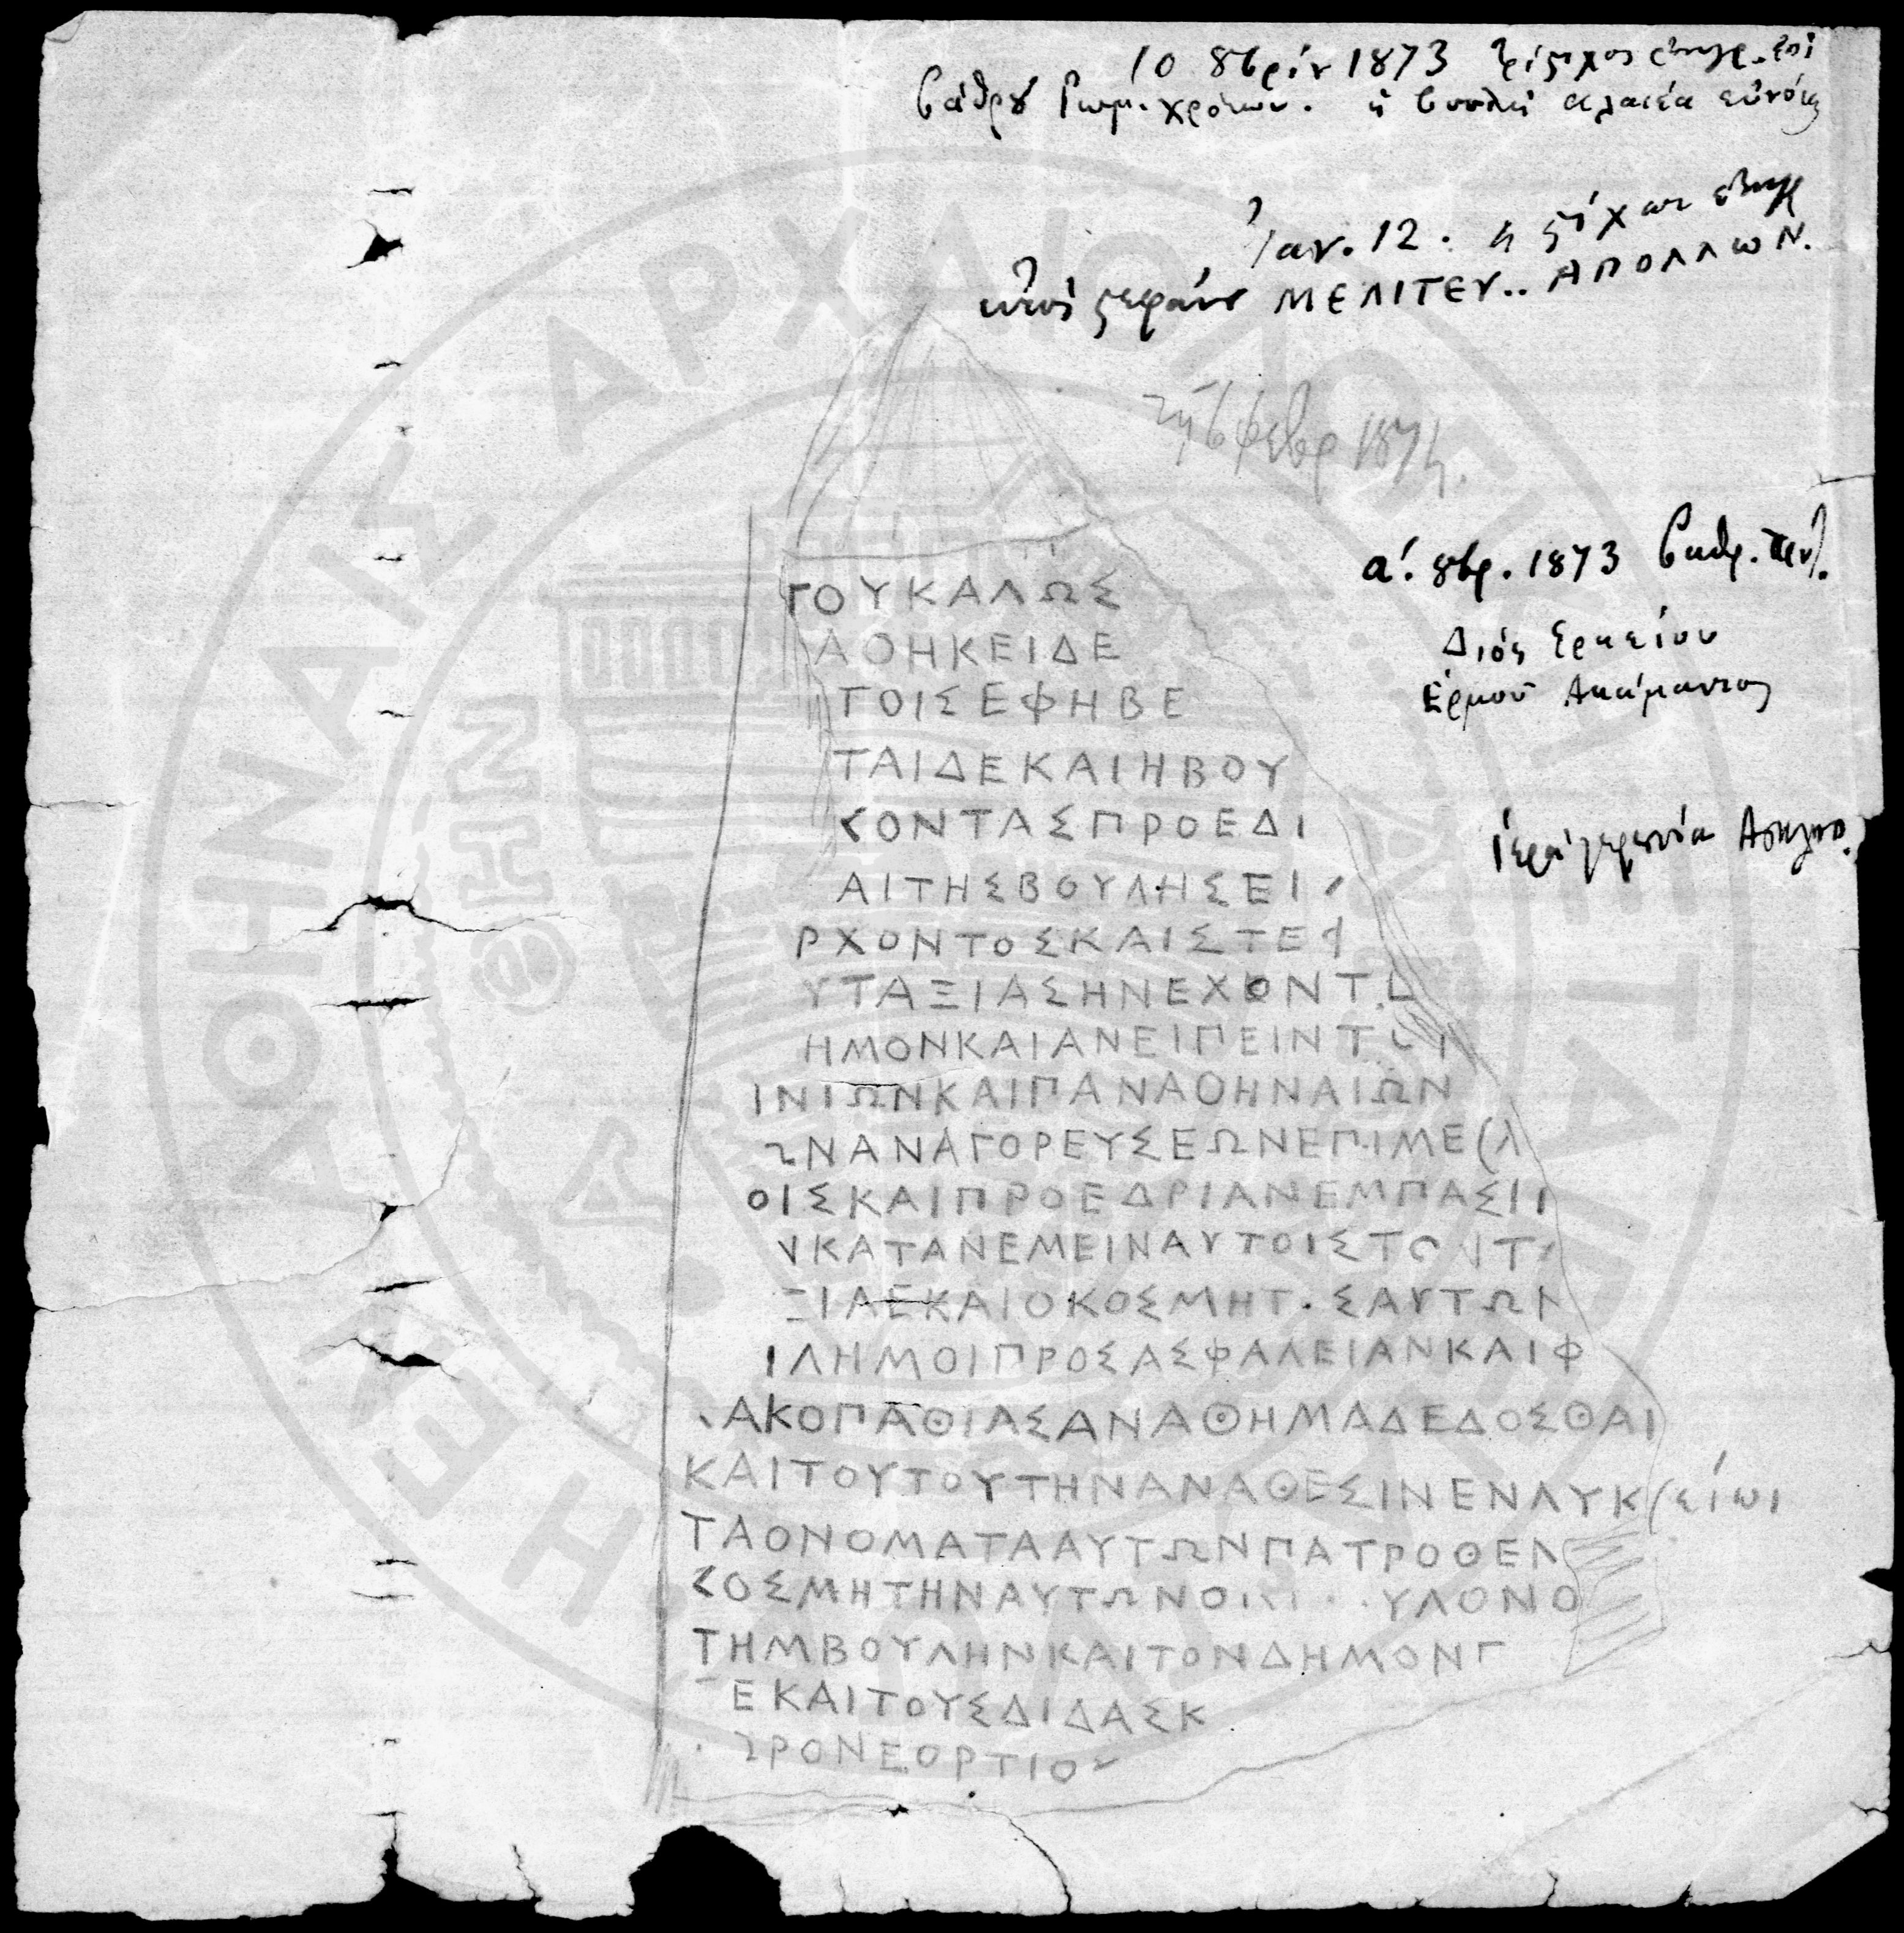 10 8βρίν 1873
βάθρȣ Ρωμ. χρόνων. ἡ βουλὴ
Ἰαν. 12.
ΜΕΛΙΤΕΥ.. ΑΠΟΛΛΩΝ.
φεβρ 1874.
α΄. 8βρ. 1873 βαθρ.
Διός Ερκείου
Ερμοῦ Ακάμαντος
ΓΟΥΚΑΛΩΣ
ΑΘΗΚΕΙΔΕ
ΤΟΙΣΕΦΗΒΕ
ΤΑΙΔΕΚΑΙΗΒΟΥ
ΚΟΝΤΑΣΠΡΟΕΔΙ
ΑΙΤΗΣΒΟΥΛΗΣΕΙ
ΡΧΟΝΤΟΣΚΑΙΣΤΕΦ
ΥΤΑΞΙΑΣΗΝΕΧΟΝΤ
ΗΜΟΝΚΑΙΑΝΕΙΠΕΙΝΤΟΝ
ΙΝΙΩΝΚΑΙΠΑΝΑΘΗΝΑΙΩΝ
ΩΝΑΝΑΓΟΡΕΥΣΕΩΝΕΠΙΜΕ(Λ
ΟΙΣΚΑΙΠΡΟΕΔΡΙΑΝΕΜΠΑΣΙΙ
ΝΚΑΤΑΝΕΜΕΙΝΑΥΤΟΙΣΤΟΝΤ
ΞΙΑΕΚΑΙΟΚΟΣΜΗΤ.ΣΑΥΤΩΝ
ΙΛΗΜΟΙΠΡΟΣΑΣΦΑΛΕΙΑΝΚΑΙΦ
ΑΚΟΠΑΘΙΑΣΑΝΑΘΗΜΑΔΕΔΟΣΘΑΙ
ΚΑΙΤΟΥΤΟΥΤΗΝΑΝΑΘΕΣΙΝΕΝΛΥΚ(είωι
ΤΑΟΝΟΜΑΤΑΑΥΤΩΝΠΑΤΡΟΘΕΝ
ΚΟΣΜΗΤΗΝΑΥΤΩΝΘΙ . . ΥΛΟΝΟ
ΤΗΜΒΟΥΛΗΝΚΑΙΤΟΝΔΗΜΟΝΓ
ΤΕΚΑΙΤΟΥΣΔΙΔΑΣΚ
. ΩΡΟΝΕΟΡΤΙΟΣ
Η ΕΝ ΑΘΗΝΑΙΣ ΑΡΧΑΙΟΛΟΓΙΚΗ ΕΤΑΙΡΕΙΑ